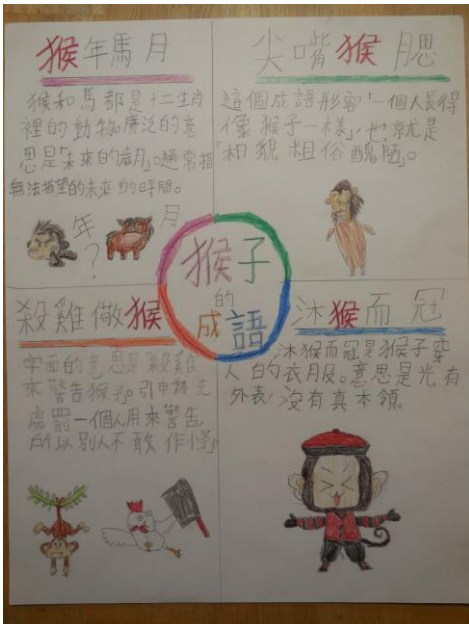 猴年馬月
猴和馬都是十二生肖
裡的動物。廣泛的意
思是「未來的歲月」。通常指
無法指望的未來的時間。
年
?
月
尖嘴猴腮
這個成語形容「一個人長得
像猴子一樣」,也就是
「相貌粗俗醜陋」。
猴子
的
成語
殺雞儆猴
字面的意思是殺雞
來警告猴子。引申為先
處罰一個人用來警告
所以別人不敢作怪」
沐猴而冠
沐猴而冠是猴子穿
人的衣服。意思是光有
外表,沒有真本領。